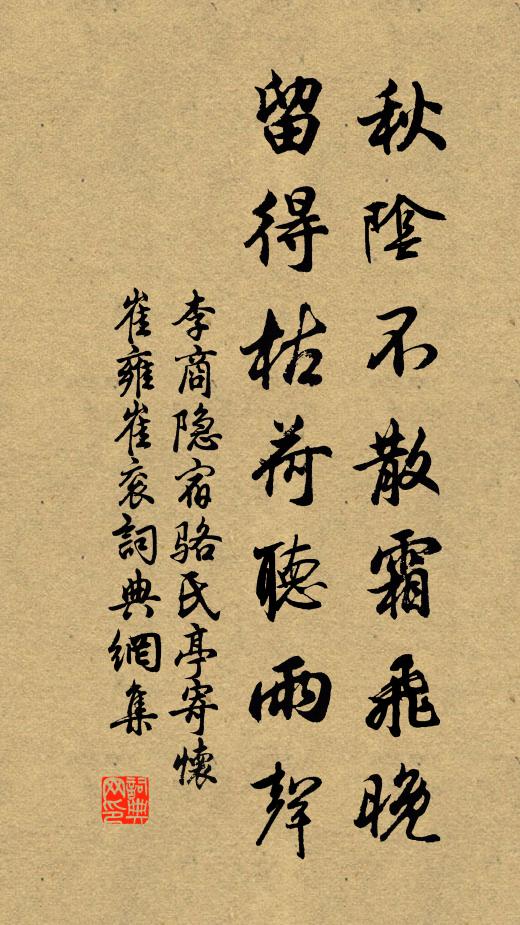 秋陰不散霜飛晚
留得枯荷聽雨聲
李商隐宿骆氏亭寄懷
崔雍崔衮詞典網集
詞典網印